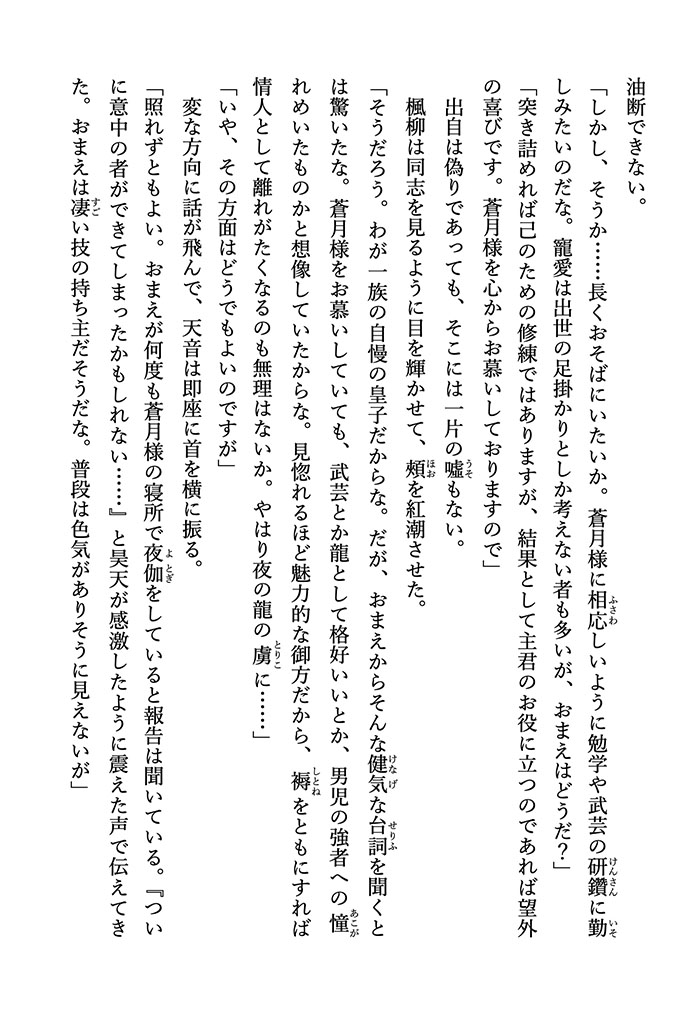 油断できない。
「しかし、そうか……長くおそばにいたいか。蒼月様に相応しいように勉学や武芸の研鑽に勤
しみたいのだな。寵愛は出世の足掛かりとしか考えない者も多いが、おまえはどうだ？」
「突き詰めれば己のための修練ではありますが、結果として主君のお役に立つのであれば望外
の喜びです。蒼月様を心からお慕いしておりますので」
出自は偽りであっても、そこには一片の嘘もない。
楓柳は同志を見るように目を輝かせて、頰を紅潮させた。
「そうだろう。わが一族の自慢の皇子だからな。だが、おまえからそんな健気な台詞を聞くと
は驚いたな。蒼月様をお慕いしていても、武芸とか龍として格好いいとか、男児の強者への憧
れめいたものかと想像していたからな。見惚れるほど魅力的な御方だから、褥をともにすれば
情人として離れがたくなるのも無理はないか。やはり夜の龍の虜に……」
「いや、その方面はどうでもよいのですが」
変な方向に話が飛んで、天音は即座に首を横に振る。
「照れずともよい。おまえが何度も蒼月様の寝所で夜伽をしていると報告は聞いている。『つい
に意中の者ができてしまったかもしれない……』と昊天が感激したように震えた声で伝えてき
た。おまえは凄い技の持ち主だそうだな。普段は色気がありそうに見えないが」